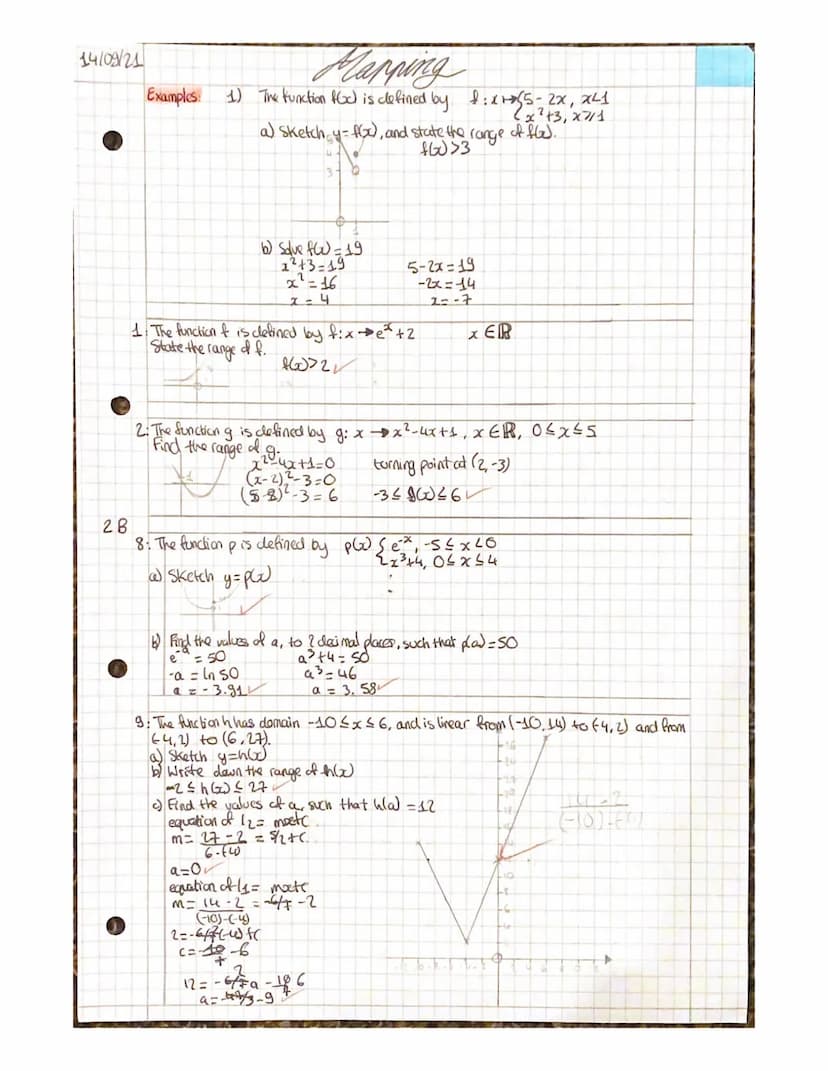 14/09/21
Mapping
Examples: 1) The function f(x) is defined by f: x ↦ {5 - 2x, x<1
{x²+3, x⩾1
a) Sketch y=f(x), and state the range of f(x).
f(x) >3
5
4
3
1
b) Solve f(x) = 19
x²+3=19 5-2x=19
x² = 16 -2x = 14
x = 4 x = -7
1: The function f is defined by f: x → eˣ+2 x ∈ ℝ
State the range of f.
f(x) > 2 ✓
2: The function g is defined by g: x → x²-4x+1, x ∈ ℝ, 0 ≤ x ≤ 5
Find the range of g.
x²-4x+1=0 turning point at (2,-3)
(x-2)²-3=0
(5-2)²-3 = 6 -3 ≤ g(x) ≤ 6 ✓
2B
8: The function p is defined by p(x) {e⁻ˣ, -5 ≤ x < 0
{x³+4, 0 ≤ x ≤ 4
a) Sketch y=p(x)
b) Find the values of a, to 2 decimal places, such that p(a)=50
e⁻ᵃ = 50 a³+4 = 50
-a = ln 50 a³ = 46
a = -3.91 ✓ a = 3.58 ✓
9: The function h has domain -10 ≤ x ≤ 6, and is linear from (-10,14) to (-4,2) and from
(-4,2) to (6,27).
a) Sketch y=h(x)
b) Write down the range of h(x)
2 ≤ h(x) ≤ 27 ✓
c) Find the values of a, such that h(a) = 12
equation of l2 = mx+c
m = 27 - 2 = 5/2 + c
6-(-4)
a=0 ✓
equation of l1 = mx+c
m = 14 - 2 = -2
(-10)-(-4)
14 - 2
(-10)-(-4)
c = -6
12 = -2a - 6
a = -9 ✓